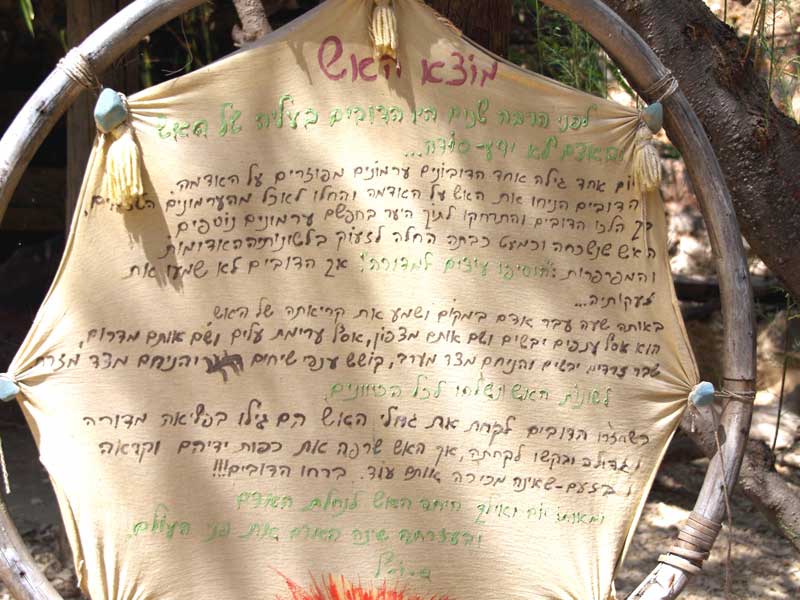 מוצא האש
לפני הרבה שנים היו הדובים בעליה של האש
והאדם לא ידע-סודה...
יום אחד גילה אחד הדובונים ערמונים מפוזרים על האדמה.
הדובים הניחו את האש על האדמה והחלו לאכול מהערמונים
כך הלכו הדובים והתרחקו לתוך היער בחפשם ערמונים נוספים
האש שנשכחה וכמעט כבתה החלה לזעוק בלשונותיה האדומות
והמפרפרות: "הוסיפו עיצים למדורה"! אך הדובים לא שמעו את
זעקותיה...
באותה שעה עבר אדם במקום ושמע את קריאותה של האש
הוא אסף ענפים יבשים ושם אותם מצפון, אסף ערימת עלים ושם אותם מדרום,
שבר זרדים יבשים והניחם מצד מערב, קושש ענפי שיחים והניחם מצד מזרח
לשונות האש נשלחו לכל הכיוונים.
כשחזרו הדובים לקחת את גחלי האש הם גילו בפליאה מדורה
גדולה ובקשו לקחתה, אך האש שרפה את כפות ידיהם וקראה
בזעם-שאינה מכירה אותם עוד. ברחו הדובים!!!
ומאותו יום ואילך היתה האש לנחלת האדם
ובעזרתה שינה האדם את פני העולם.